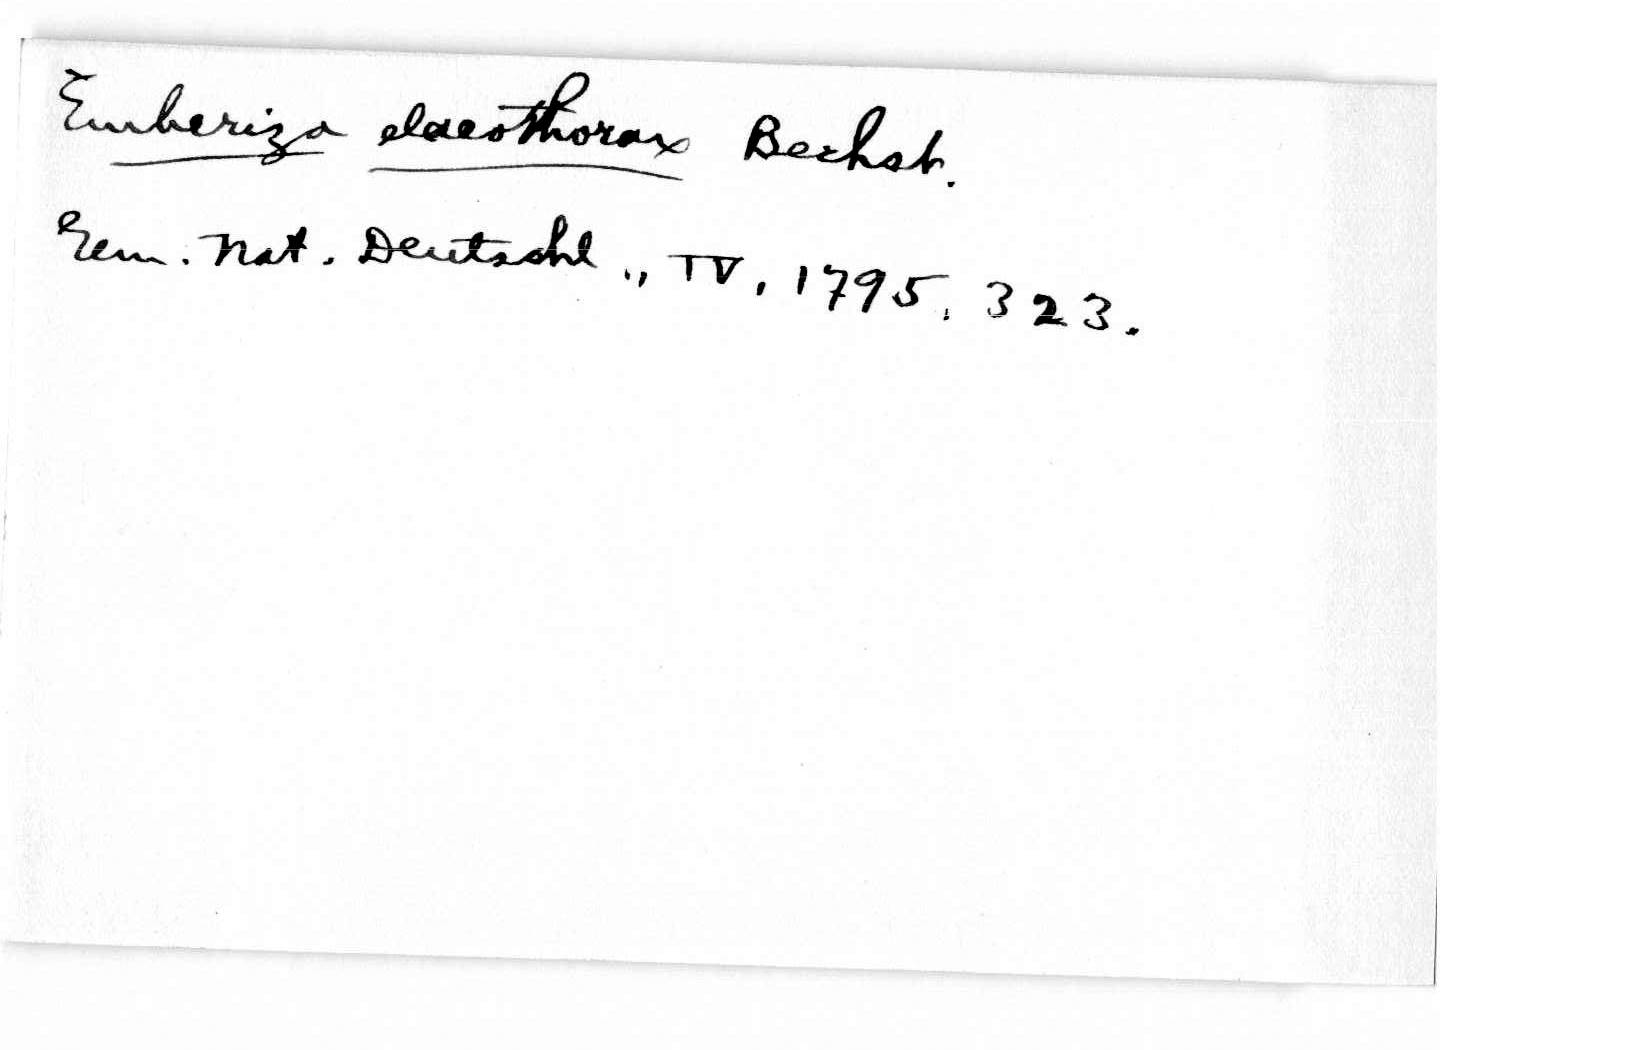 Emberiza elaeothorax Bechst.
Gem. Nat. Deutschl., IV, 1795, 323.